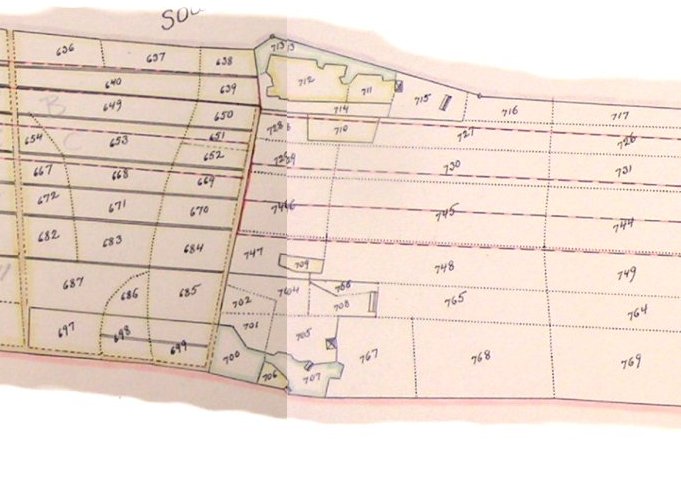 636 637 638
713
640 639
712 711
715
716 717
B 649 650
714
710
654 C 653 651
721 726
652
667 668 669
730 731
672 671 670
745 744
682 683 684
747
709
748 749
687 686 685
702 704
708
765 764
697 698 699
701 705
700
767 768 769
706 707